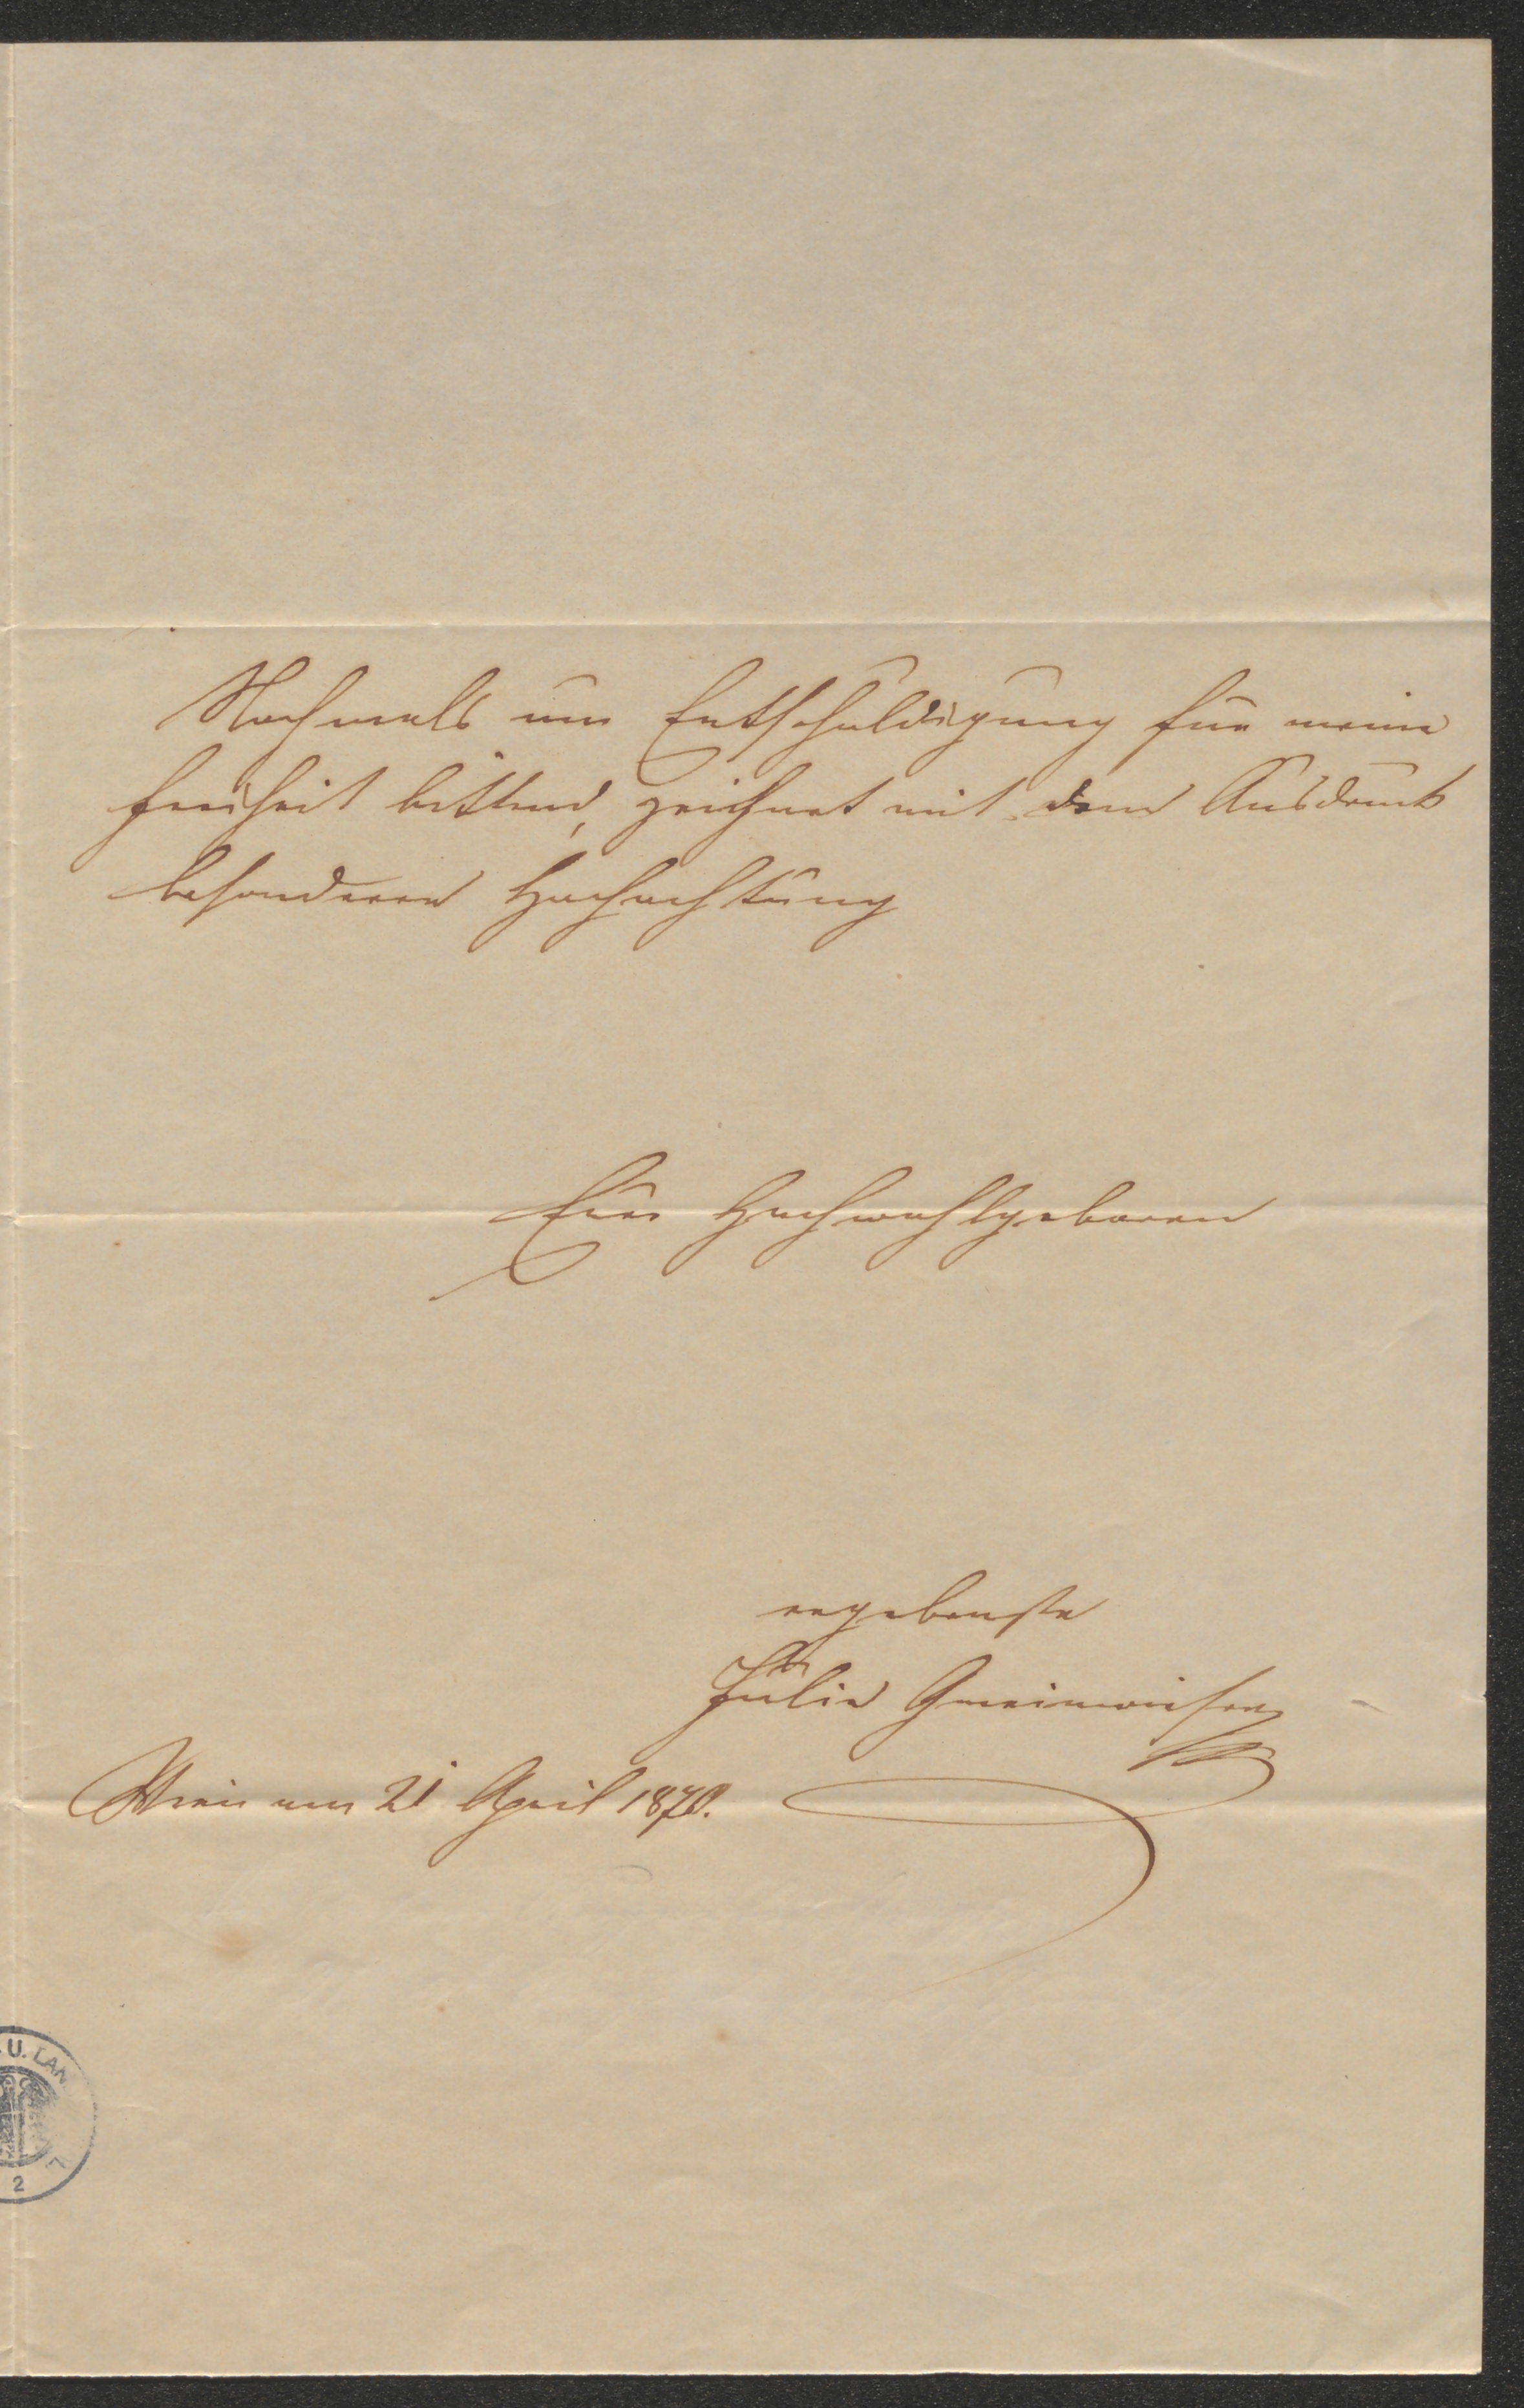 Nochmals um Entschuldigung für meine
Freiheit bittend, zeichnet mit dem Ausdruck
besonderer Hochachtung
Euer Hochwohlgeboren
ergebenste
Julie
Wien am 21 April 1870.
U. LAN
2